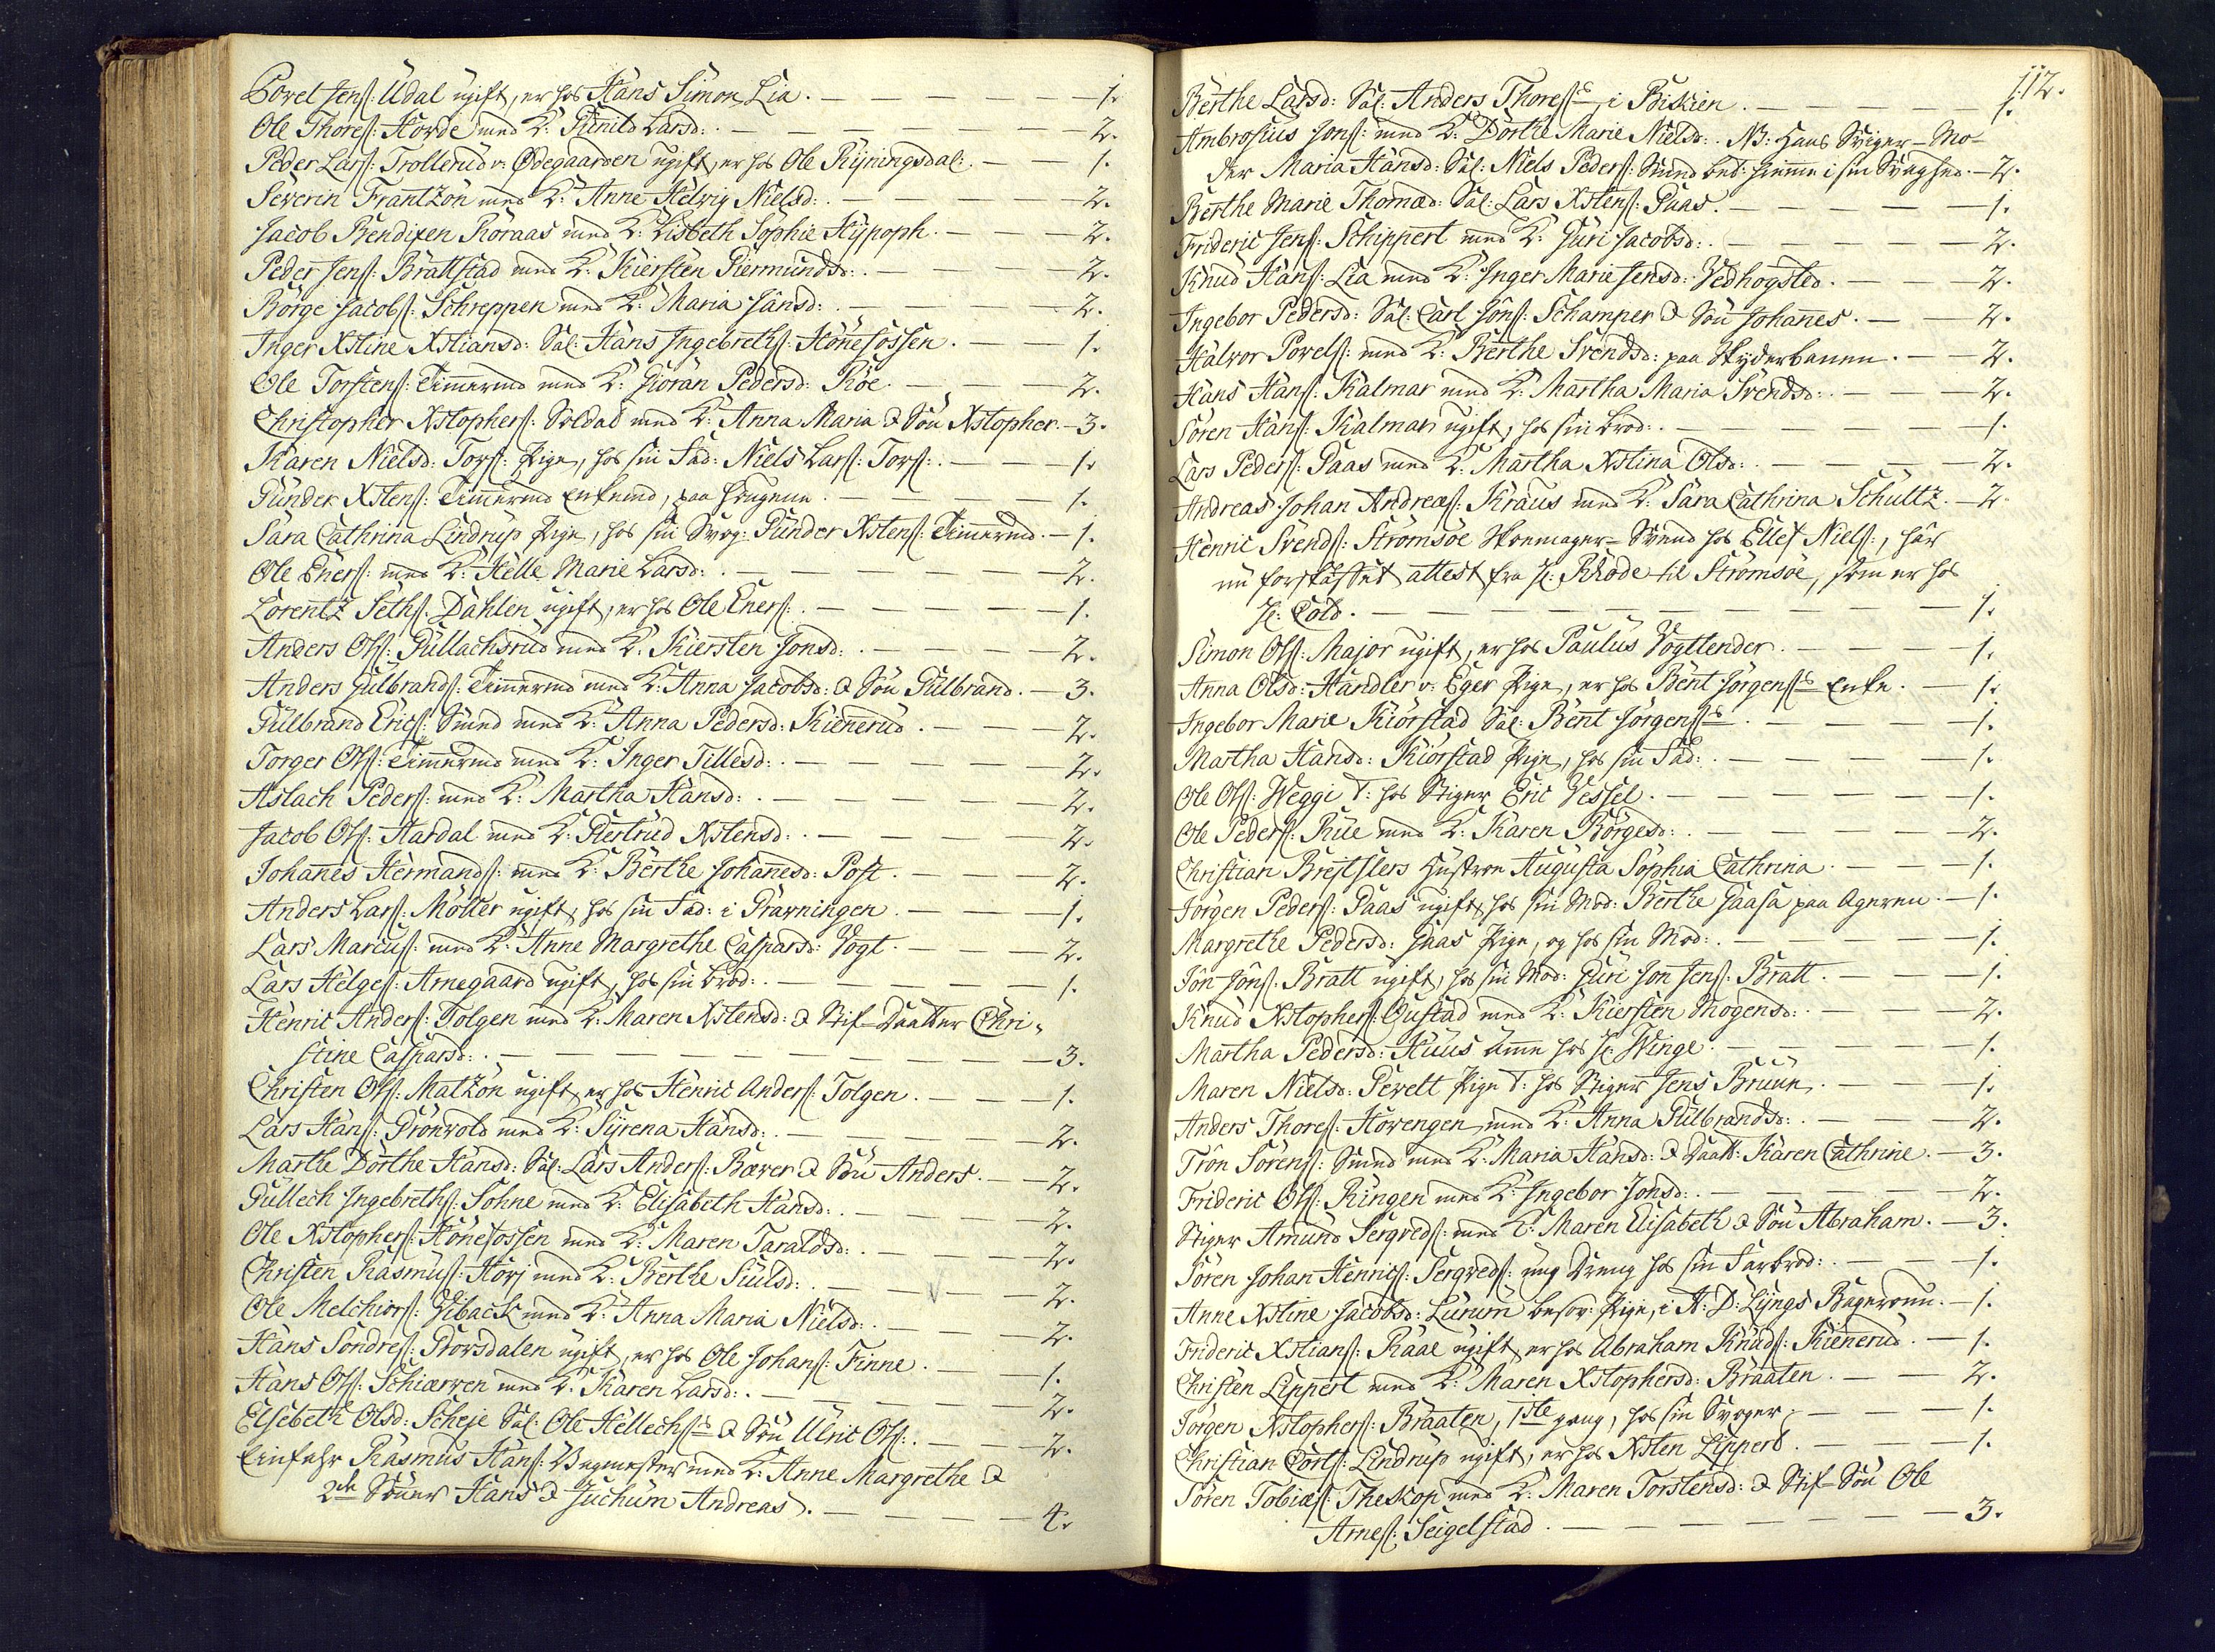 Povel Jenſ: Udal ugift, er hos Hans Simon Lia. — 1.
Ole Thoreſ: Horde med K: Gunild Larsd: — 2.
Peder Larſ: Trollerud v: Ødegaarden ugift, er hos Ole Ryningsdal: — 1.
Severin Frantzōn med K: Anne Helvig Nielsd: — 2.
Jacob Bendixen Röraas med K: Lisbeth Sophie Hypoph. — 2.
Peder Jenſ: Brattſtad med K: Kierſten Giermundsd: — 2.
Börge Jacobſ: Schreppen med K: Maria Hansd: — 2.
Inger Xstine Xstiansd: Sal: Hans Ingebrethſ: Hōnefossen. — 1.
Ole Torſtenſ: Timmermd med K: Giöran Pedersd: Röe. — 2.
Christopher Xstopherſ: Soldad med K: Anna Maria & Søn Xstopher. — 3.
Karen Nielsd: Torſ: Pige, hos sin Fad: Niels Larſ: Torſ: — 1.
Gunder Xstenſ: Timmermd Enkemd, paa Haugene. — 1.
Sara Cathrina Lindrup Pige, hos sin Svog: Gunder Xstenſ: Timmermd. — 1.
Ole Enerſ: med K: Helle Marie Larsd: — 2.
Lorentz Sethſ: Dahlen ugift, er hos Ole Enerſ: — 1.
Anders Olſ: Gullachsrud med K: Kierſten Jonsd: — 2.
Anders Gulbrandſ: Timmermd med K: Anna Jacobsd: & Søn Gulbrand. — 3.
Gulbrand Ericſ: Smed med K: Anna Pedersd: Kiennerud. — 2.
Torger Olſ: Timmermd med K: Inger Tillesd: — 2.
Aslach Pederſ: med K: Martha Hansd: — 2.
Jacob Olſ: Aardal med K: Giertrud Xstensd: — 2.
Johannes Hermandſ: med K: Berthe Johannesd: Post. — 2.
Anders Larſ: Möller ugift, hos sin Fad: i Gravningen. — 1.
Lars Marcuſ: med K: Anne Margrethe Caspard: Vogt. — 2.
Lars Helgeſ: Arnegaard ugift, hos sin Brod: — 1.
Henric Anderſ: Tolgen med K: Maren Xstensd: & Stif-Daatter Chri-
stine Caspard: — 3.
Christen Olſ: Matzōn ugift, er hos Henric Anderſ: Tolgen. — 1.
Lars Hanſ: Grönvold med K: Syrena Hansd: — 2.
Marthe Dorthe Hansd: Sal: Lars Anderſ: Bæver & Søn Anders. — 2.
Gullech Ingebrethſ: Sohne med K: Elisabeth Hansd: — 2.
Ole Xstopherſ: Hōnefossen med K: Maren Taraldsd: — 2.
Christen Rasmuſ: Horj med K: Berthe Siulsd: — 2.
Ole Melchiorſ: Viback med K: Anna Maria Nielsd: — 2.
Hans Sondreſ: Gorsdalen ugift, er hos Ole Johanſ: Finne. — 1.
Hans Olſ: Schiærven med K: Karen Larsd: — 2.
Elsebeth Olsd: Scheje Sal: Ole Hellechſ: & Søn Ulric Olſ: — 2.
Einfahr Rasmus Hanſ: Vagmester med K: Anne Margrethe &
2de Sönner Hans & Juchum Andreas. — 4.
112.
Berthe Larsd: Sal: Anders Thoreſ: i Biskien. — 1.
Ambrosius Jonſ: med K: Dorthe Marie Nielsd: NB: Hans Sviger-Mo-
der Maria Hansd: Sal: Niels Pederſ: Smed bet: hiemme i sin Svaghed. — 2.
Berthe Marie Thomæd: Sal: Lars Xstenſ: Paas. — 1.
Frideric Jenſ: Schippert med K: Guri Jacobsd: — 2.
Knud Hanſ: Lia med K: Inger Marie Jensd: Vedhogsted. — 2.
Ingebor Pedersd: Sal: Carl Jōnſ: Schamper & Søn Johannes. — 2.
Halvor Povelſ: med K: Berthe Svendsd: paa Skyderbanen. — 2.
Hans Hanſ: Kalmar med K: Martha Maria Svendsd: — 2.
Sören Hanſ: Kalmar ugift, hos sin Brod: — 1.
Lars Pederſ: Gaas med K: Martha Xstina Olsd: — 2.
Andreas Johan Andreæſ: Kraus med K: Sara Cathrina Schultz. — 2.
Henric Svendſ: Strömsöe Skoemager-Svend hos Ellef Nielſ:, har
nu forskaffet attest fra Hr: Rhode til Strömsöe, som er hos
Hr: Cold. — 1.
Simon Olſ: Major ugift, er hos Paulus Vogttender. — 1.
Anna Olsd: Handler v: Eger Pige, er hos Bent Jörgenſ: Enke. — 1.
Ingebor Marie Kiörstad Sal: Bent Jörgenſ: — 1.
Martha Hansd: Kiörstad Pige, hos sin Fad: — 1.
Ole Olſ: Weggi T: hos Stiger Eric Vessel. — 1.
Ole Pederſ: Rue med K: Karen Börgesd: — 2.
Christian Brentſlers Hustroe Augusta Sophia Cathrina. — 1.
Jörgen Pederſ: Gaas ugift, hos sin Mod: Berthe Gaasa paa Ageren. — 1.
Margrethe Pedersd: Gaas Pige, og hos sin Mod: — 1.
Jōn Jōnſ: Bratt ugift, hos sin Mod: Guri Jon Jenſ: Bratt. — 1.
Knud Xstopherſ: Gustad med K: Kiersten Mogensd: — 2.
Martha Pedersd: Huus Amme hos Hr: Winge. — 1.
Maren Nielsd: Gevelt Pige T: hos Stiger Jens Bruun. — 1.
Anders Thoreſ: Hovengen med K: Anna Gulbrandsd: — 2.
Trōn Sörenſ: Smed med K: Maria Hansd: & Daatt: Karen Cathrine. — 3.
Frideric Olſ: Ringen med K: Ingebor Jonsd: — 2.
Stiger Amund Sergvedſ: med K: Maren Elisabeth & Søn Abraham. — 3.
Sören Johan Henricſ: Sergvedſ: ung Dreng hos sin Farbrod: — 1.
Anne Xstine Jacobsd: Lurum besov: Pige, i H: D: Lyngs Bageronn. — 1.
Frideric Xstianſ: Raae ugift, er hos Abraham Knudſ: Kiennerud. — 1.
Christen Lippert med K: Maren Xstophersd: Braaten. — 2.
Jörgen Xstopherſ: Braaten, 1ste gang, hos sin Svoger. — 1.
Christian Cortſ: Lindrup ugift, er hos Xsten Lippert. — 1.
Sören Tobiæſ: Theskop med K: Maren Torstensd: & Stif-Søn Ole
Arneſ: Seigelstad. — 3.